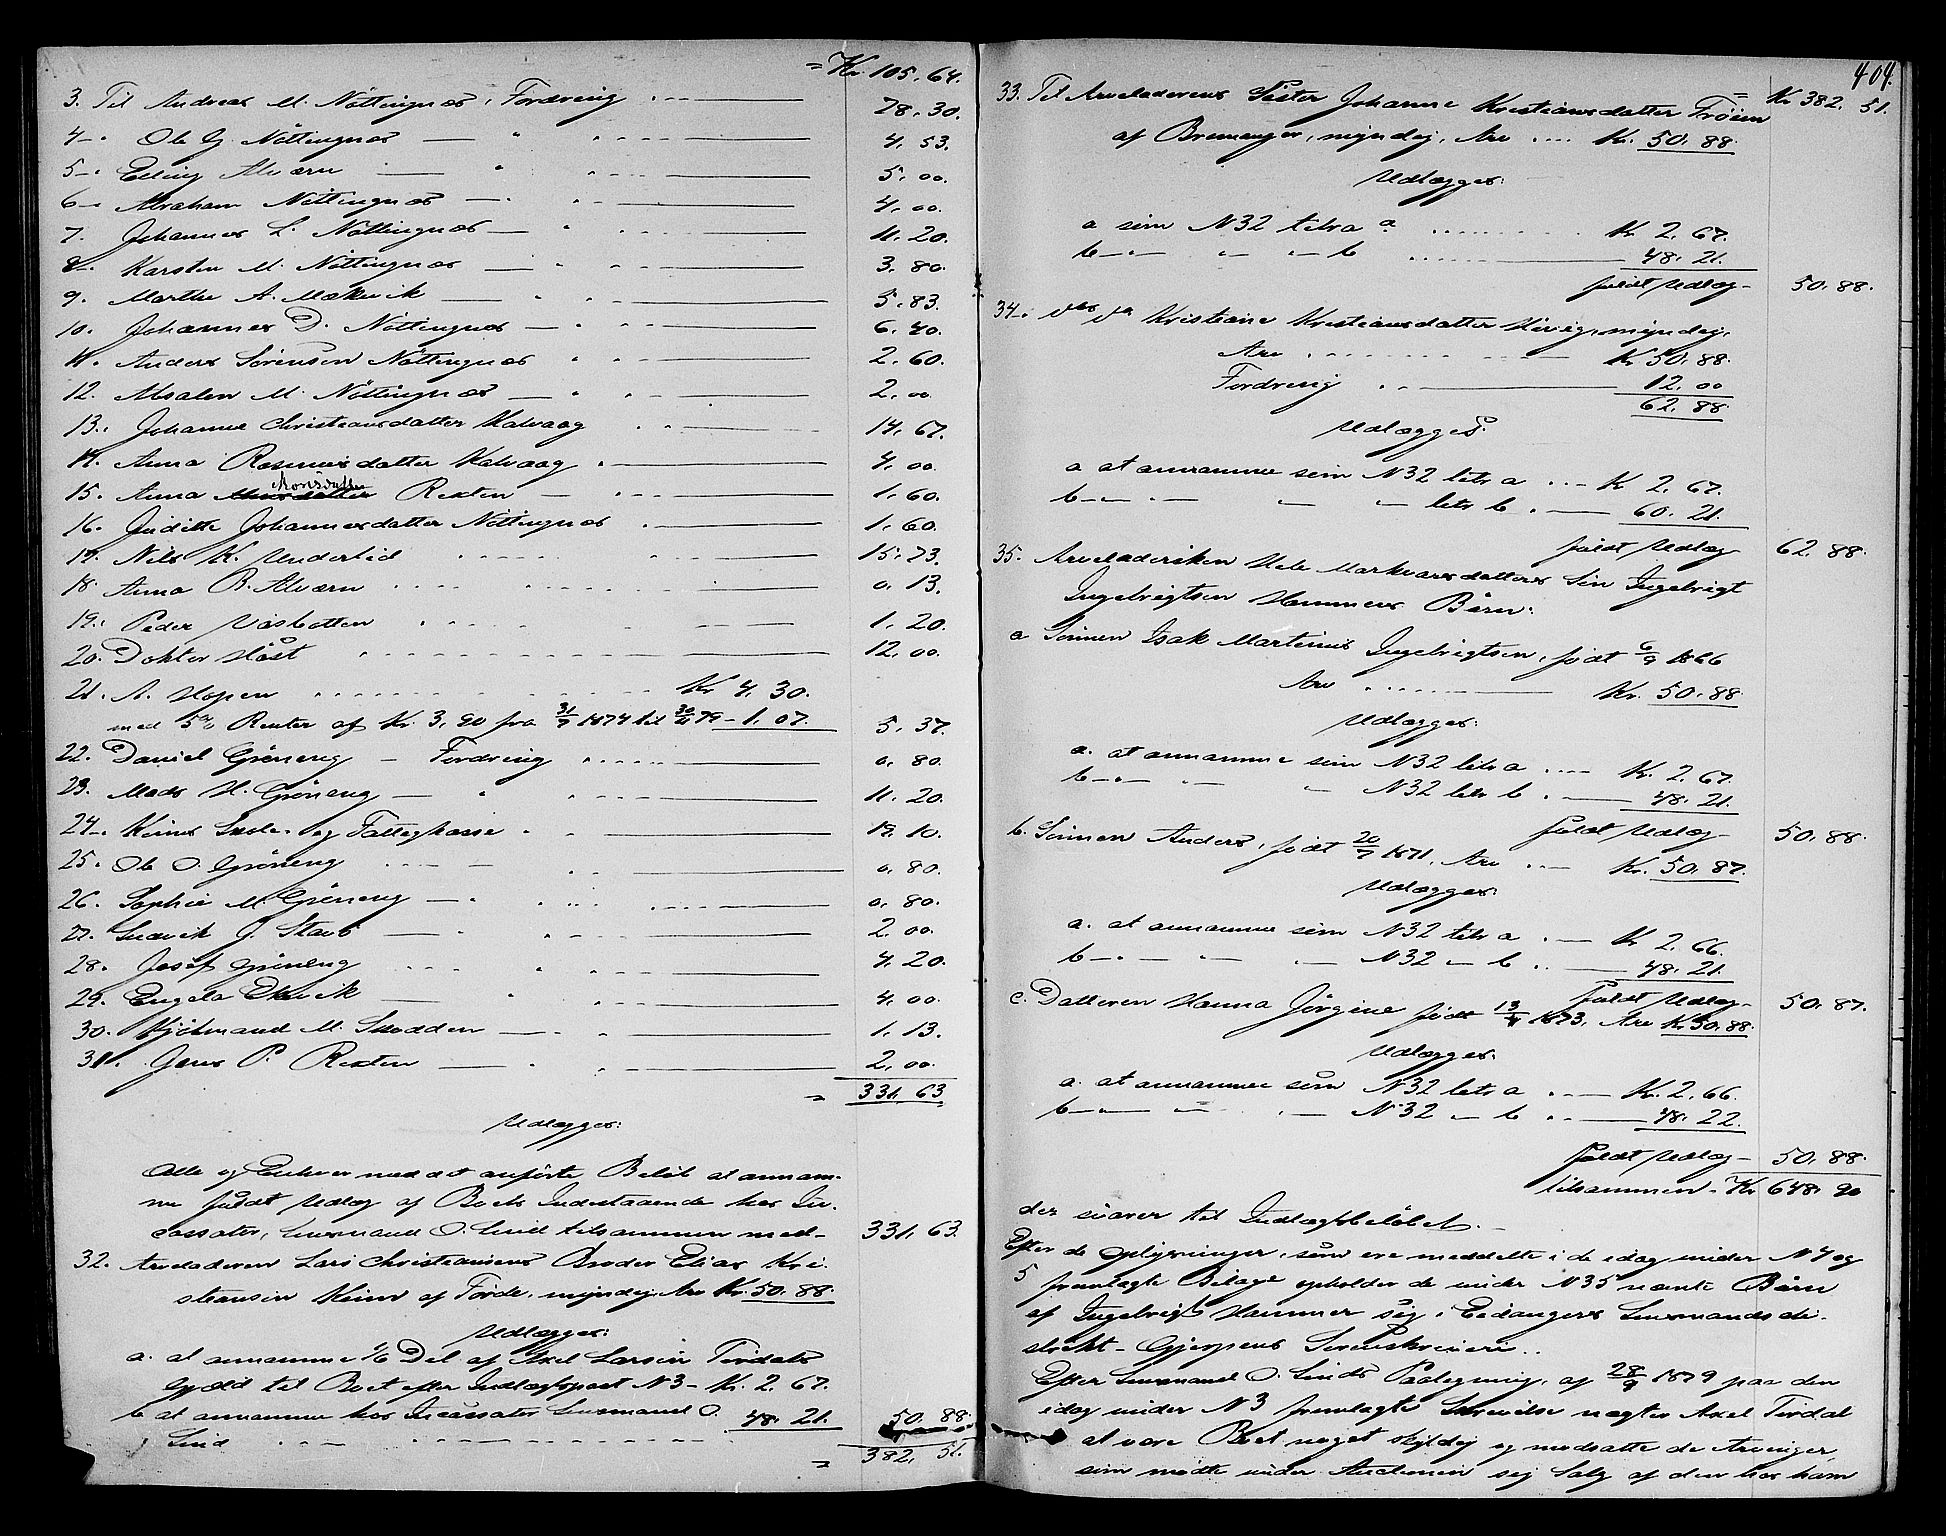 = Kr. 105. 64.
3. Til Andreas M. Nöttingnæs, Fordring 78. 30.
4 - Ole G. Nöttingnæs — " 4. 53.
5 - Elling Alværn — " 5. 00.
6 - Abraham Nöttingnæs — " 4. 00.
7. Johannes L. Nöttingnæs — " 11. 20.
8 - Karsten M. Nöttingnæs — " 3. 80.
9. Marthe A. Mækevik — " 5. 83.
10. Johannes D. Nöttingnæs — " 6. 40.
11. Anders Sörensen Nöttingnæs " 2. 60.
12. Absalon M. Nöttingnæs — " 2. 00.
13. Johanne Christiansdatter Kalvaag 14. 67.
14. Anna Rasmusdatter Kalvaag 4. 00.
15. Anna Monsdatter Rexten — 1. 60.
16. Judithe Johannesdatter Nöttingnæs 1. 60.
17. Nils K. Undertid 15. 73.
18. Anna B. Alværn 0. 13.
19. Peder Vasbotten 1. 20.
20. Doktor Höst 12. 00.
21. A. Hopen Kr. 4. 30.
med 5% Renter af Kr. 3, 90 fra 31/7 1874 til 30/6 79 - 1. 07. 5. 37.
22. Daniel Gröneng — Fordring 0. 80.
23. Mads H. Gröneng — " 11. 20.
24 - Kinns Sede- og Fattigkasse " 19. 10.
25. Ole O. Gröneng 0. 80.
26. Sophie M. Gröneng — " 0. 80.
27. Ludvik J. Stavö — " 2. 00.
28. Josef Gröneng 4. 20.
29. Engela Ekevik — " 4. 00.
30. Hjelmand M. Skodden — " 1. 13.
31. Jens P. Rexten — " 2. 00.
= 331. 63
Udlægges:
Alle og Enhver med det anförte Belöb at annam-
me fuldt Udlæg af Boets Indestaaende hos In-
cassator, Lensmand O. Lind tilsammen med - 331. 63.
32. Arveladeren Lars Christiansens Broder Elias Kri-
stiansen Kinn af Förde, myndig, Arv Kr. 50. 88.
Udlægges:
a. at annamme 1/6 Del af Axel Larsen Terdals
Gjæld til Boet efter Indlægspost N 3 - Kr. 2. 67.
b at annamme hos Incassator Lensmand O.
Lind 48. 21. 50. 88.
= 382. 51.
404.
= Kr 382. 51.
33. Til Arveladerens Söster Johanne Kristiansdatter Fröien
af Bremanger, myndig, Arv .... Kr. 50. 88.
Udlægges:
a som N 32 litra a Kr 2. 67.
b — " — " — b 48. 21.
fuldt Udlæg - 50. 88.
34 - Kristiane Kristiansdatter myndig,
Arv Kr 50. 88.
Fordring 12. 00
62. 88.
Udlægges.
a at annamme som N 32 litra a .... Kr 2. 67.
b — " — " — — litr b. 60. 21.
fuldt Udlæg - 62. 88.
35. Arveladersken Markvardsdatters Sön Ingebrigt
Ingebrigtsen Hammers Börn:
a Sönnen Isak Martinus Ingebrigtsen, födt 6/9 1866
Arv Kr. 50. 88
Udlægges:
a. at annamme som N 32 litr a .... Kr. 2. 67.
b — " — " — N 32 litr b. 48. 21.
fuldt Udlæg - 50. 88.
b. Sönnen Anders, födt 20/7 1871, Arv .... Kr. 50. 87.
Udlægges:
a. at annamme som N 32 litr a Kr 2. 66.
b — " — " — N 32 — b 48. 21.
fuldt Udlæg - 50. 87.
c. Datteren Hanna Jörgine födt 13/4 1873, Arv Kr 50. 88.
Udlægges:
a. at annamme som N 32 litr a Kr. 2. 66.
b — " — " — N 32 — b 48. 22.
fuldt Udlæg - 50. 88.
tilsammen - Kr 648. 90
der svarer til Indlægsbelöbet. -
Efter de Oplysninger, som ere meddelte i de idag under N 4 og
5 fremlagte Bilage opholder de under N 35 nævnte Börn
af Ingebrigt Hammer sig i Eidangers Lensmandsdi-
strikt - Gjerpens Sorenskriveri.
Efter Lensmand O. Linds Paategning, af 28/9 1879 paa den
idag under N 3 fremlagte Skrivelse nægter Axel Terdal
at være Boet noget skyldig og modsatte de Arvinger,
som mödte under Auctionen sig Salg af den hos ham